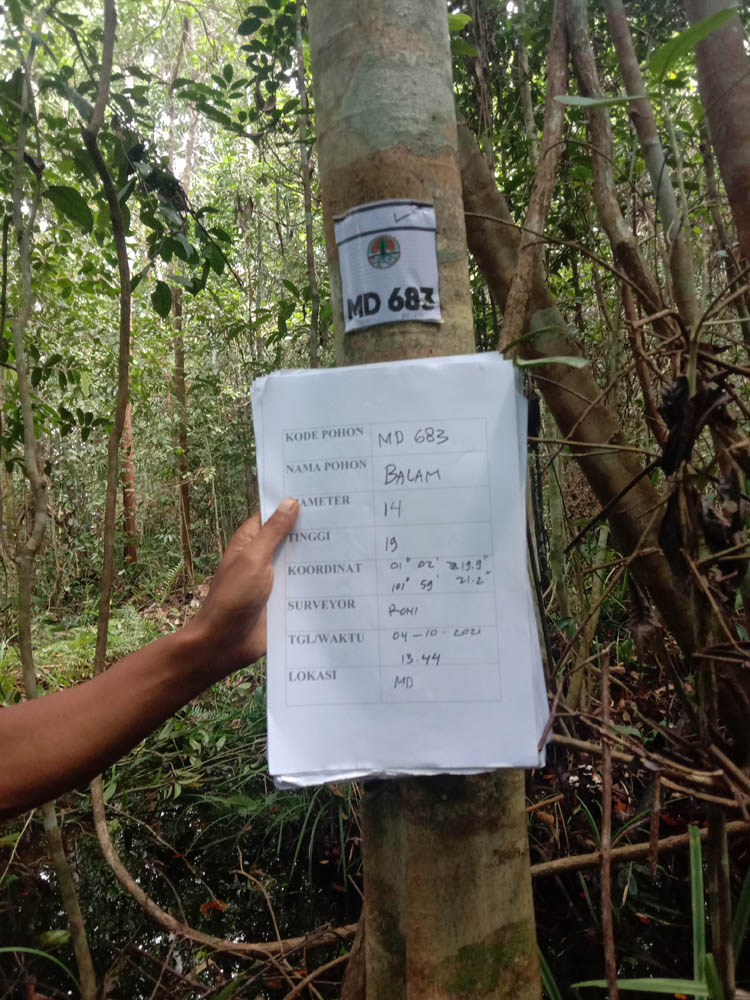 MD 683
KODE POHON MD 683
NAMA POHON BALAM
AMETER 14
TINGGI 19
KOORDINAT 01° 02' 19.9"
101° 59' 21.2"
SURVEYOR ROMI
TGL/WAKTU 04-10-2021
13.44
LOKASI MD